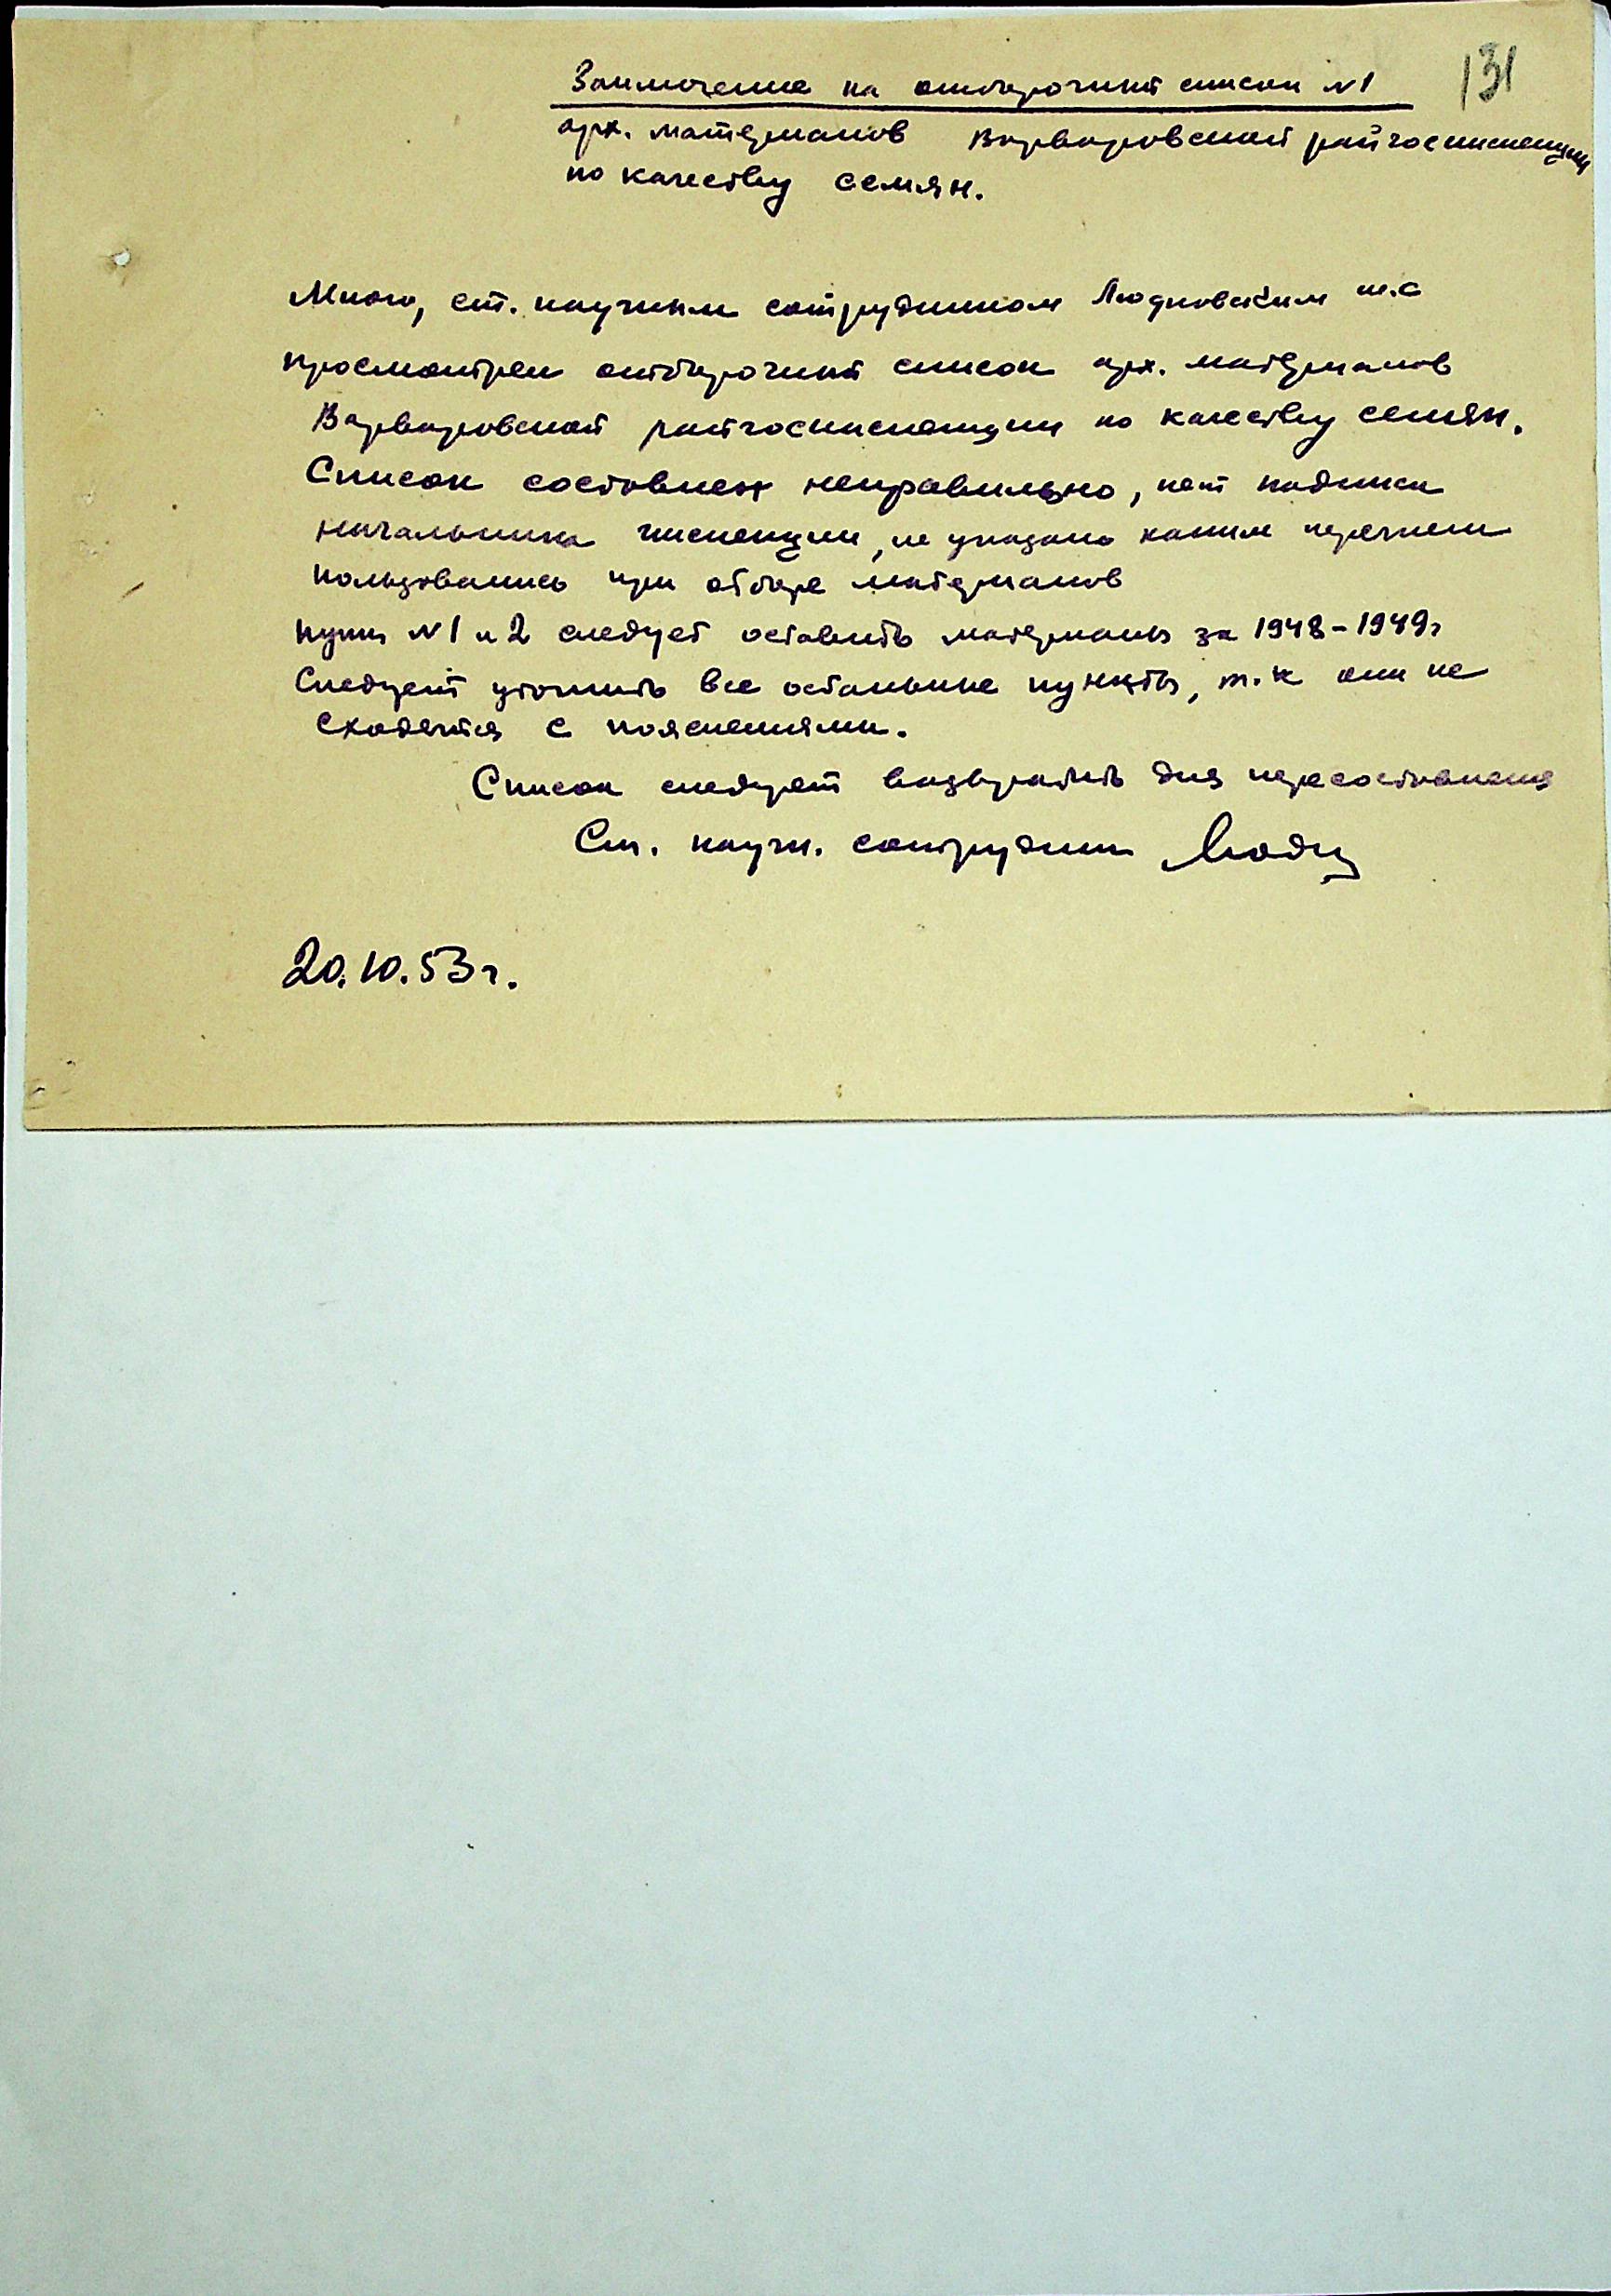 131
Заключение на отборочный список №1
арх. материалов Варваровской райгосинспекции
по качеству семян.
Мною, ст. научным сотрудником
просмотрен отборочный список арх. материалов
Варваровской райгосинспекции по качеству семян.
Список составлен неправильно, нет подписи
начальника инспекции, не указано каким перечнем
пользовались при отборе материалов
пункт №1 и 2 следует оставить материалы за 1948-1949г
Следует уточнить все остальные пункты, т.к они не
сходятся с пояснениями.
Список следует возвратить для пересоставления
Ст. научн. сотрудник
20.10.53г.